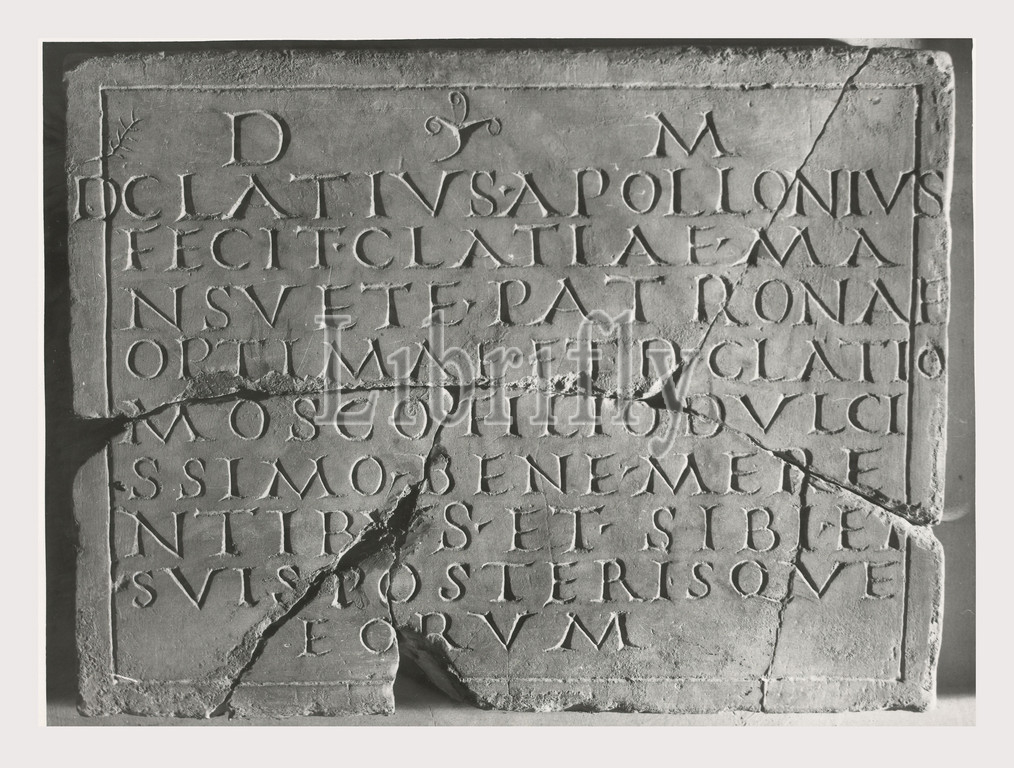 D M
D CLATIVS·APOLLONIVS
FECIT·CLATIAE·MA
NSVETE·PATRONAE
OPTIMAE ET D CLATIO
MOSCO FILIO DVLCI
SSIMO·BENE·MERE
NTIBVS·ET·SIBI·ET
SVIS POSTERISQVE
EORVM
Librifly